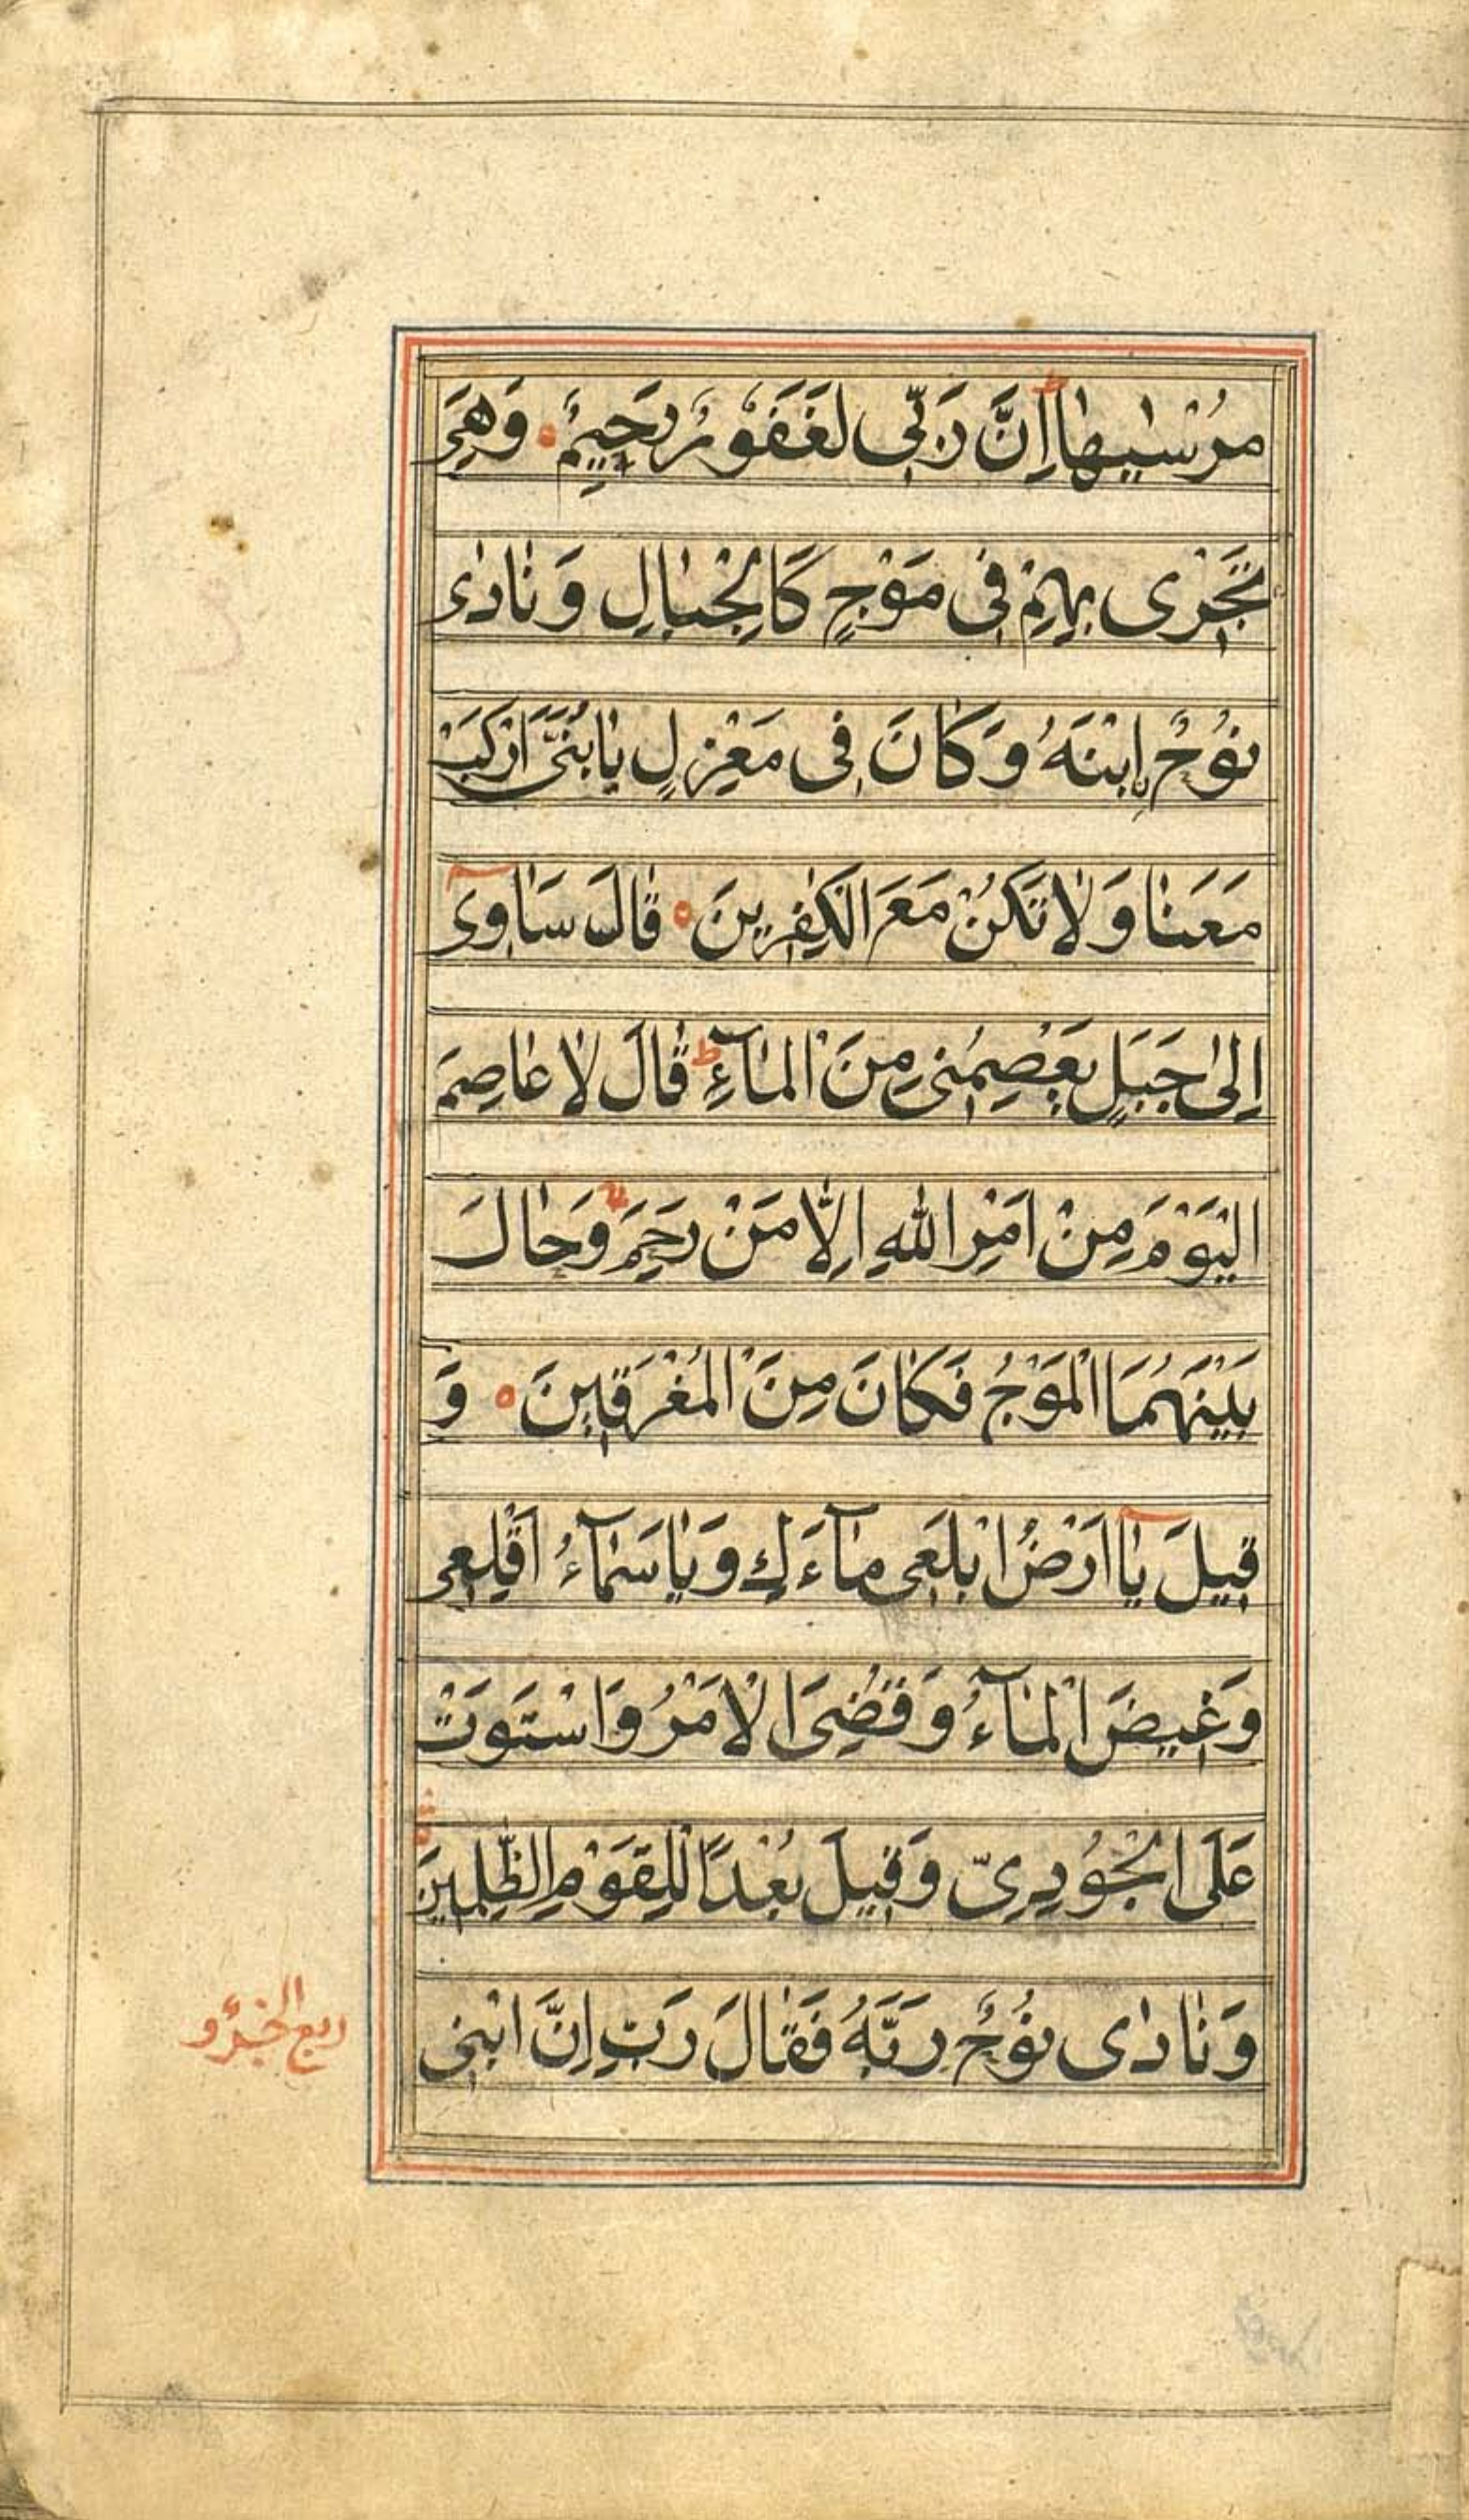 مُرْسٰيهٰا اِنَّ رَبّى لَغَفُوْرٌ رَحيمٌ وَهِىَ
تَجْرى بِهِمْ فى مَوْجٍ كَالْجِبٰالِ وَنٰادٰى
نُوْحٌ ابْنَهُ وَكٰانَ فى مَعْزِلٍ يٰابُنَىَّ ارْكَبْ
مَعَنٰا وَلٰا تَكُنْ مَعَ الْكٰفِرينَ قٰالَ سَاٰوى
اِلٰى جَبَلٍ يَعْصِمُنى مِنَ الْمٰآءِ قٰالَ لٰا عٰاصِمَ
الْيَوْمَ مِنْ اَمْرِ اللّٰهِ اِلّٰا مَنْ رَحِمَ وَحٰالَ
بَيْنَهُمَا الْمَوْجُ فَكٰانَ مِنَ الْمُغْرَقينَ وَ
قيلَ يٰآ اَرْضُ ابْلَعى مٰآءَكِ وَيٰاسَمٰآءُ اَقْلِعى
وَغيضَ الْمٰآءُ وَقُضِىَ الْاَمْرُ وَاسْتَوَتْ
عَلَى الْجُودِىِّ وَقيلَ بُعْدًا لِلْقَوْمِ الظّٰلِمينَ
وَنٰادٰى نُوْحٌ رَبَّهُ فَقٰالَ رَبِّ اِنَّ ابْنى
ربع الجزؤ